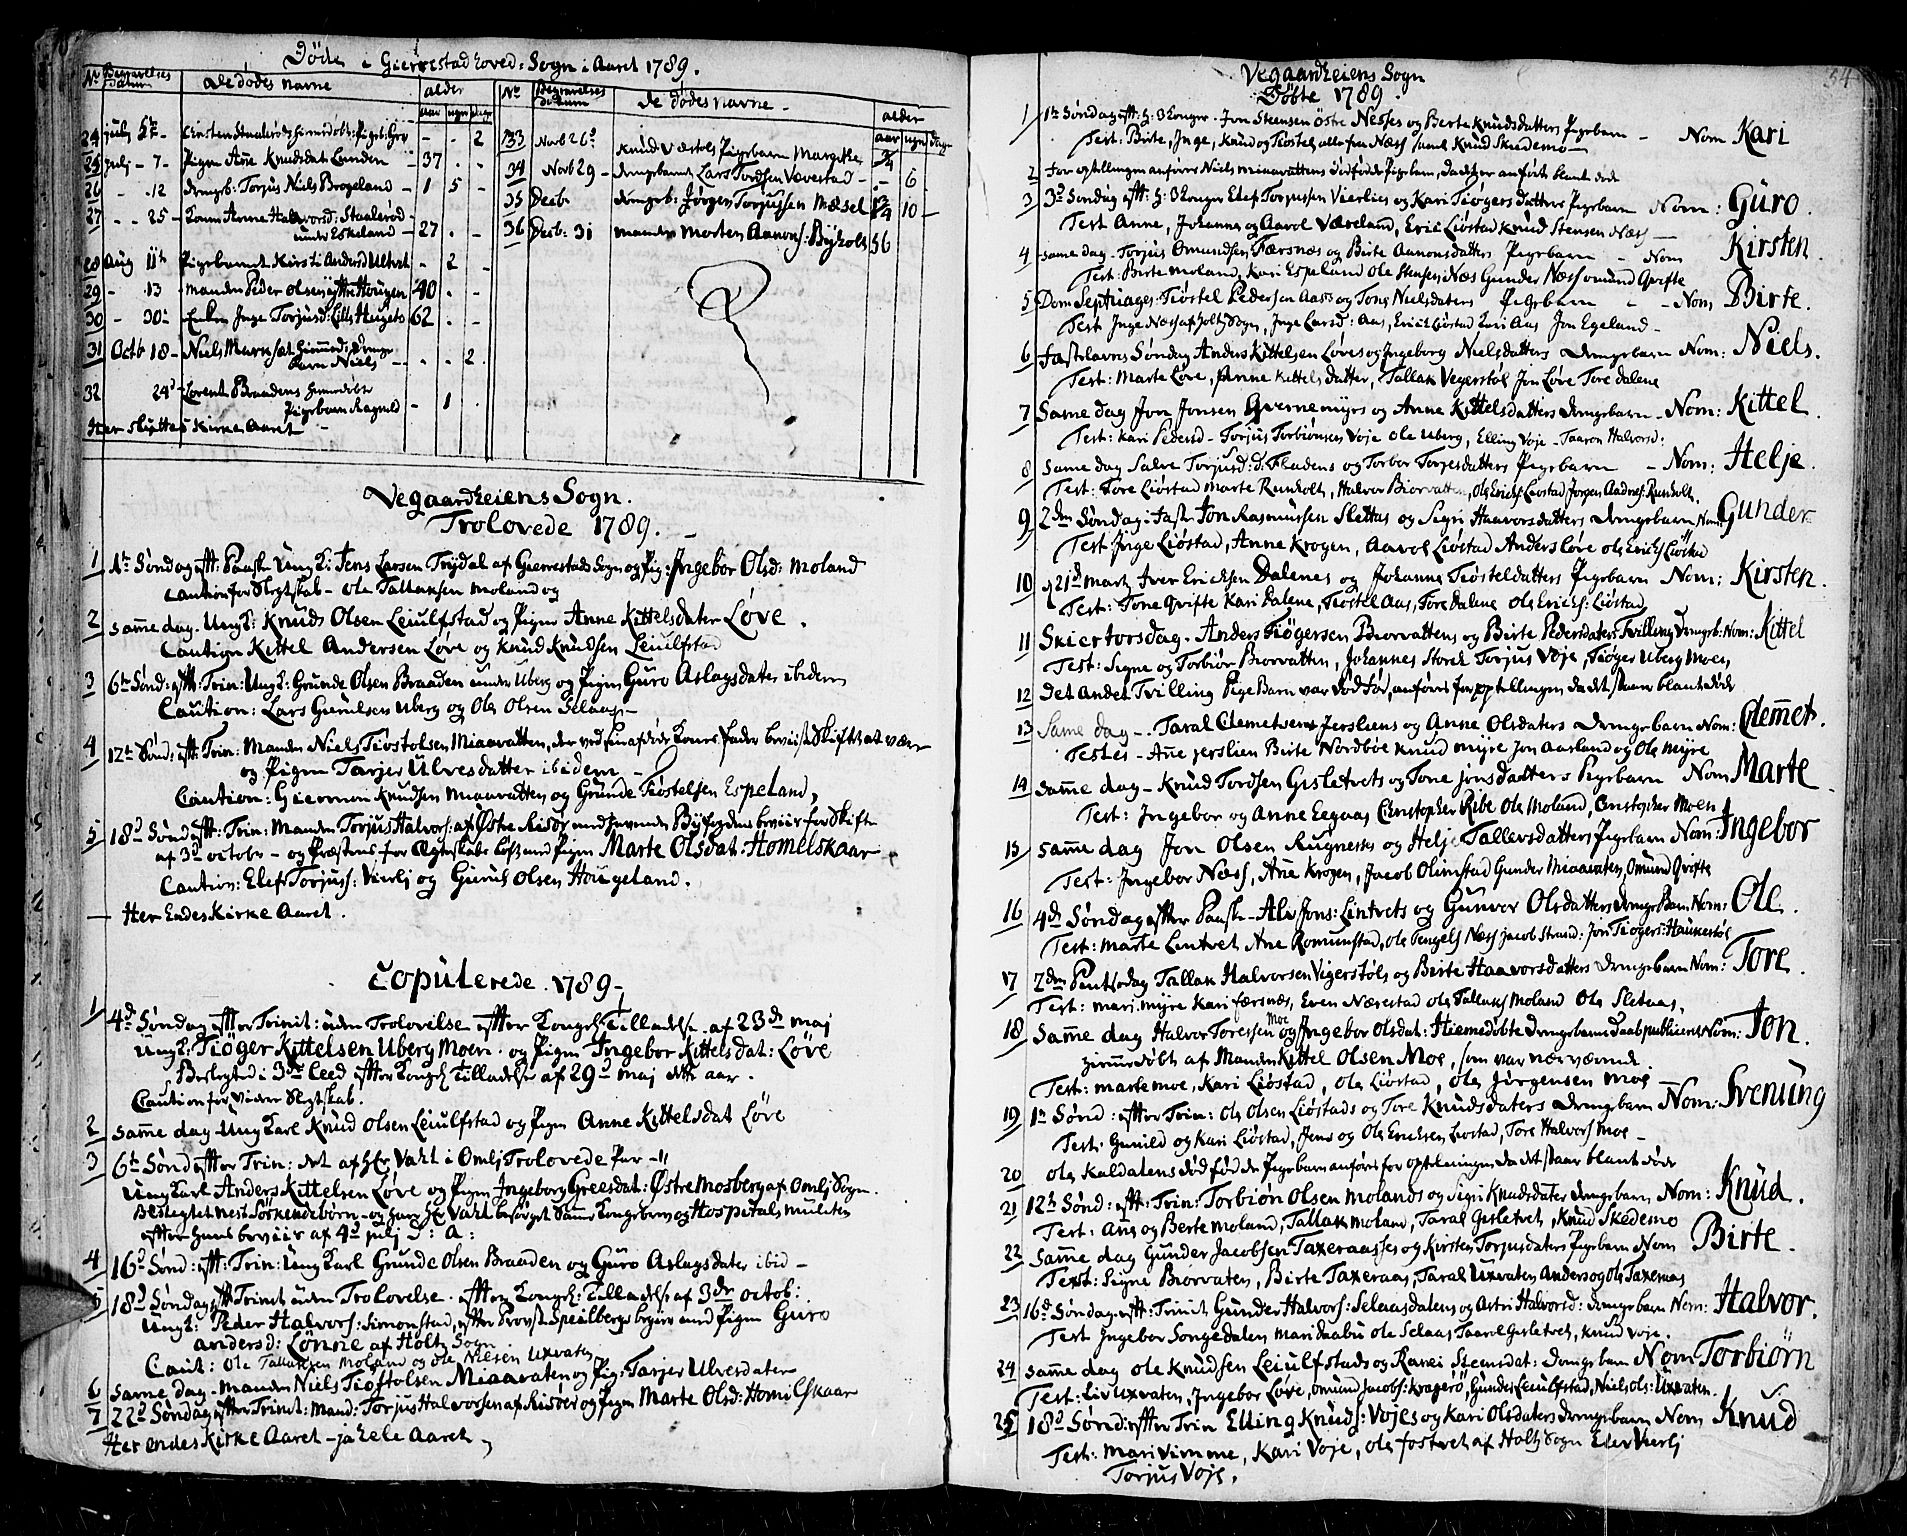 Døde i Gierrestad hoved: Sogn i Aaret 1789.
No Begravelses datum De dødes navne alder
aar ugr dage
24 julj 5te Gunsten Staalerøds hiemdøbt: Pigeb: Gro - - 2
25 Julj - 7 - Pigen Anne Knudsdat Lunden 37 . -
26 - - 12 drengb: Torjus Niels Brogeland - 1 5 -
27 - - 25 - Konn Anne Halvorsd: Staalerød
under Eskeland - 27 . -
28 Aug 11te Pigebarnet Kirsti Andersd Ulltvet - 2 -
29 - 13 - Manden Peder Olsen Yttre Hougen 40 . -
30 - 30te - Enken Inge Torjusd: Lille Hugets 62 . -
31 Octb 18 - Niels Murnsæt hiemmed: drenge
Barn Niels - . . 2
32 24d Lorents Braadens hiemdøbte
Pigebarn Ragnild - 1 .
Her sluttes Kirke Aaret -
No Begravelses datum De dødes navne - alder
aar ugr dage
33 Novb 26d Knud Væstøls Pigebarn Margrethe 3/4
34 Novb 29 - drengebarnet Lars Tordsen Vævestad - . 6 -
35 Decb drengb: Jørgen Torjussen Mæsel 13/4 10 -
36 Desb: 31 manden Morten Aanons: Bÿholt 56
Vegaardheiens Sogn.
Trolovede 1789. -
1 1te Søndag efft: Paaske Ung K: Jens Larsen Trydal af Gierrestads Sogn og Pig: Ingebor Olsd: Moland
Caution for Slegtskab - Ole Tallaksen Moland og
2 samme dag. Ung K: Knud Olsen Leiulfstad og Pigen Anne Kittelsdater Løve.
Caution Kittel Andersen Løve og Knud Knudsen Leiulfstad
3 6te Sønd: efft: Trin: Ung K: Grunde Olsen Braaden under Uberg og Pigen Guro Aslagsdater ibidem
Caution: Lars Gunulsen Uberg og Ole Olsen Selaas -
4 12te Sønd: efft: Trin: Manden Niels Tiøstolsen Miaavatten, der ved sin afdøde Kones Fader beviiste Skiftet at være
og Pigen Tarjer Ulvesdatter ibidem -
Caution: Giermon Knudsen Miaavatten og Grunde Tiøstelsen Espeland,
5 18d Sønd efft: Trin: Manden Torjus Halvors: af Østre Risør med havende Byfogdens beviis for Skifte
af 3d octobr - og Præstens for Ægteskabs løfte med Pigen Marte Olsdat: Homelskaar
Caution: Elef Torjuss: Vierli og Guruf Olsen Hougeland.
- Her Endes Kirke Aaret.
Copulerede 1789 -
1 4de Søndag efter Trinit: uden Trolovelse efter Kongel: Tilladelse af 23de maj
Ung K: Tiøger Kittelsen Uberg Moen og Pigen Ingebor Kittelsdat: Løve
Beslegted i 3die Leed efter Kongel: Tilladelse af 29d maj dette aar.
Caution for videre Slegtskab.
2 samme dag Ung Karl Knud Olsen Leiulfstad og Pigen Anne Kittelsdat Løve
3 6te Sønd efter Trin: det af Hr Vahl i Omlj Trolovede Par -
Ung Karl Anders Kittelsen Løve og Pigen Ingeborg Greesdat: Østre Mosberg af Omlj Sogn.
Beslegtet nest Sørskendebørn - og har Hr Vahl besørget Samme Kongebrev og Hospitals mulcten
efter hans beviis af 4d julj D: A:
4 16d Sønd: efft: Trin: Ung Karl Grunde Olsen Braaden og Guro Aslagsdater ibid -
5 18d Søndag efft Trinit uden Trolovelse. efter Kongel: Tilladelse af 3de octob:
Ung K: Peder Halvors: Simonstad, efter Provst Speilbergs beviis med Pigen Guro
Andersd: Lønne af Holts Sogn
Caut: Ole Tallaksen Moland og Ole Nielsen Uxvaten
6 samme dag - manden Niels Tiøstolsen Miaavaten og Pig: Tarjer Ulvesdater
7 22d Søndag efter Trinit: Mand: Torjus Halvorsen af Risøer og Pigen Marte Olsd: Homelskaar
Her endes Kirke Aaret - ja hele Aaret
54
Vegaardheiens Sogn
Døbte 1789.
1 1te Søndag efft: H: 3 Konger. Jon Steensen Østre Nesses og Birte Knudsdatters Pigebarn - Nom Kari
Test: Birte, Inge, Knud og Tiøstel alle fra Næss samt Knud Skedemo -
2 For optellingen anføres Niels Miaavattens dødfødde Pigebarn, da det er anført blant døde
3 3d Søndag efft: H: 3 Konger Elef Torjussen Vierlies og Kari Tiøgersdatters Pigebarn Nom: Guro.
Test Anne, Johanna og Aavol Væreland, Eric Liøstad Knud Stensen Næss -
4 samme dag - Torjus Omundsen Færsnæs og Birte Aanonsdatters Pigebarn - Nom Kirsten
Test: Birte Moland, Kari Espeland Ole Stensen Næs Gunder Næss Omund Qvifte
5 Dom Septuages: Tiøstel Pedersen Aass og Tone Nielsdaters Pigebarn - - Nom Birte.
Test Inge Næss af Holts Sogn, Inge Larsd: Aas, Erick Liøstad Kari Aas Jon Egeland -
6 Fastelavns Søndag Anders Kittelsen Løves og Ingeborg Nielsdatters drengebarn Nom: Niels.
Test: Marte Løve, Anne Kittelsdatter, Tallak Vegerstøl Jon Løve Tore Dalene
7 Samme dag Jon Jonsen Qvernemyrs og Anne Kittelsdatters drengebarn - Nom: Kittel.
Test: Kari Pedersd - Torjus Torbiønsen Voje Ole Uberg, Elling Voje - Taaron Halvorsd:
8 samme dag Salve Torjusd: d: Fladens og Torbor Torjesdatters Pigebarn - Nom: Helje.
Test: Tore Liøstad Marte Runholt, Halvor Biorvatten, Ole Ericks: Liøstad Jørgen Aadnes: Runholt.
9 2den Søndag i Faste Jon Rasmussen Slettas og Sigri Haavorsdatters drengebarn Nom Gunder
Test: Inge Liøstad, Anne Krogen, Aavol Liøstad Anders Løve Ole Ericks Liøstad
10 d 21de Martz Iver Ericksen Dalenes og Johanna Tiøsteldatters Pigebarn Nom: Kirsten.
Test: Tone Qvifte Kari Dalene, Tiøstel Aas, Tore Dalene Ole Ericks: Liøstad
11 Skiertorsdag. Anders Tiøgersen Biorvattens og Birte Pedersdaters Tvilling drengeb: Nom: Kittel
Test: Signe og Torbiør Biorvatten, Johannes Storch Torjus Voje, Tiøger Uberg Moen
12 Det Andet Tvilling Pige Barn var død før, anføres for optellingen da det staaer blant døde
13 Same dag - Taral Clemetsens Jersliens og Anne Olsdaters drengebarn Nom: Clemmet.
Testes - Ane Jerslien Birte Nordbøe Knud Myre Jon Aarland og Ole Myre
14 samme dag - Knud Tordsen Gisletvets og Tone Jonsdatters Pigebarn Nom Marte
Test: Ingebor og Anne Eegaas Christopher Ribe Ole Moland, Christopher Moen
15 samme dag Jon Olsen Rugnesses og Helje Tallevsdatters Pigebarn Nom: Ingebor
Test: Ingebor Næss, Ane Krogen, Jacob Olimstad Gunder Miaavaten, Omund Qvifte
16 4de Søndag efter Paaske - Alv Jons: Lintvets og Gunvor Olsdatters drenge Barn Nom: Ole.
Test: Marte Lintvet Ane Romundstad, Ole Tengels Næss Jacob Strand: Jon Tiøgers: Haukestøl
17 2den Pentsedag Tallak Halvorsen Vigerstøls og Birte Haavorsdatters drengebarn Nom: Tore.
Test: Mari Myre Kari Færsnæs, Even Nærestad Ole Tallaks Moland Ole Sletaas,
18 samme dag Halvor Toressen Moe og Ingebor Olsdat: Hiemedøbte drengebarns Daab publiceret Nom: Jon.
hiemmedøbt af Manden Kittel Olsen Moe, som var nærværende.
Test: Marte Moe, Kari Liøstad, Ole Liøstad, Ole Jørgensen Moe -
19 1te Sønd: efter Trin: Ole Olsen Liøstads og Tore Knudsdaters drengebarn Nom: Svenung
Test: Gunild og Kari Liøstad, Jens og Ole Ericksen Liøstad, Tore Halvors Moe -
20 Ole Kaldalens død fødde Pigebarn anføres for optelningen da det staar blant døde
21 12te Sønd: efft: Trin: Torbiørn Olsen Molands og Sigri Knudsdater drengebarn Nom: Knud.
Test: Ans og Berte Moland, Tallak Moland, Taral Gisletvet, Knud Skedemo
22 Samme dag Gunder Jacobsen Taxeraasses og Kirsten Torjusdaters Pigebarn Nom Birte.
Test: Signe Biorvaten, Birte Taxeraas, Taral Uxvaten Anders og Ole Taxeraas
23 16de Søndag efft: Trinit Gunder Halvors: Selaasdalens og Astri Halvorsd: drengebarn Nom: Halvor.
Test Ingebor Songedalen Mari Daabu Ole Selaas Taarol Gisletvet, Knud Voje.
24 samme dag Ole Knudsen Leiulfstads og Ranei Steensdat: drengebarn Nom Torbiørn
Test: Liv Uxvaten, Ingebor Løve, Omund Jacobs: Kragerø, Gunder Leiulfstad, Niels Ols: Uxvaten.
25 18d Sønd: efter Trin Elling Knuds: Vojes og Kari Olsdaters drengebarn Nom Knud
Test: Mari Vimme, Kari Voje, Ole Fostvet af Holts Sogn Elev Vierli
Torjus Voje.